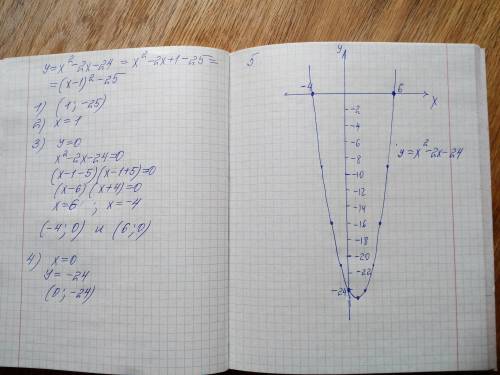 y=x²-2x-24 = x²-2x+1-25=
=(x-1)²-25
1) (1; -25)
2) x=1
3) y=0
x²-2x-24=0
(x-1-5)(x-1+5)=0
(x-6)(x+4)=0
x=6 ; x=-4
(-4; 0) и (6; 0)
4) x=0
y=-24
(0; -24)
5
y
-4
6
x
-2
-4
-6
-8
-10
-12
-14
-16
-18
-20
-22
-24
y=x²-2x-24